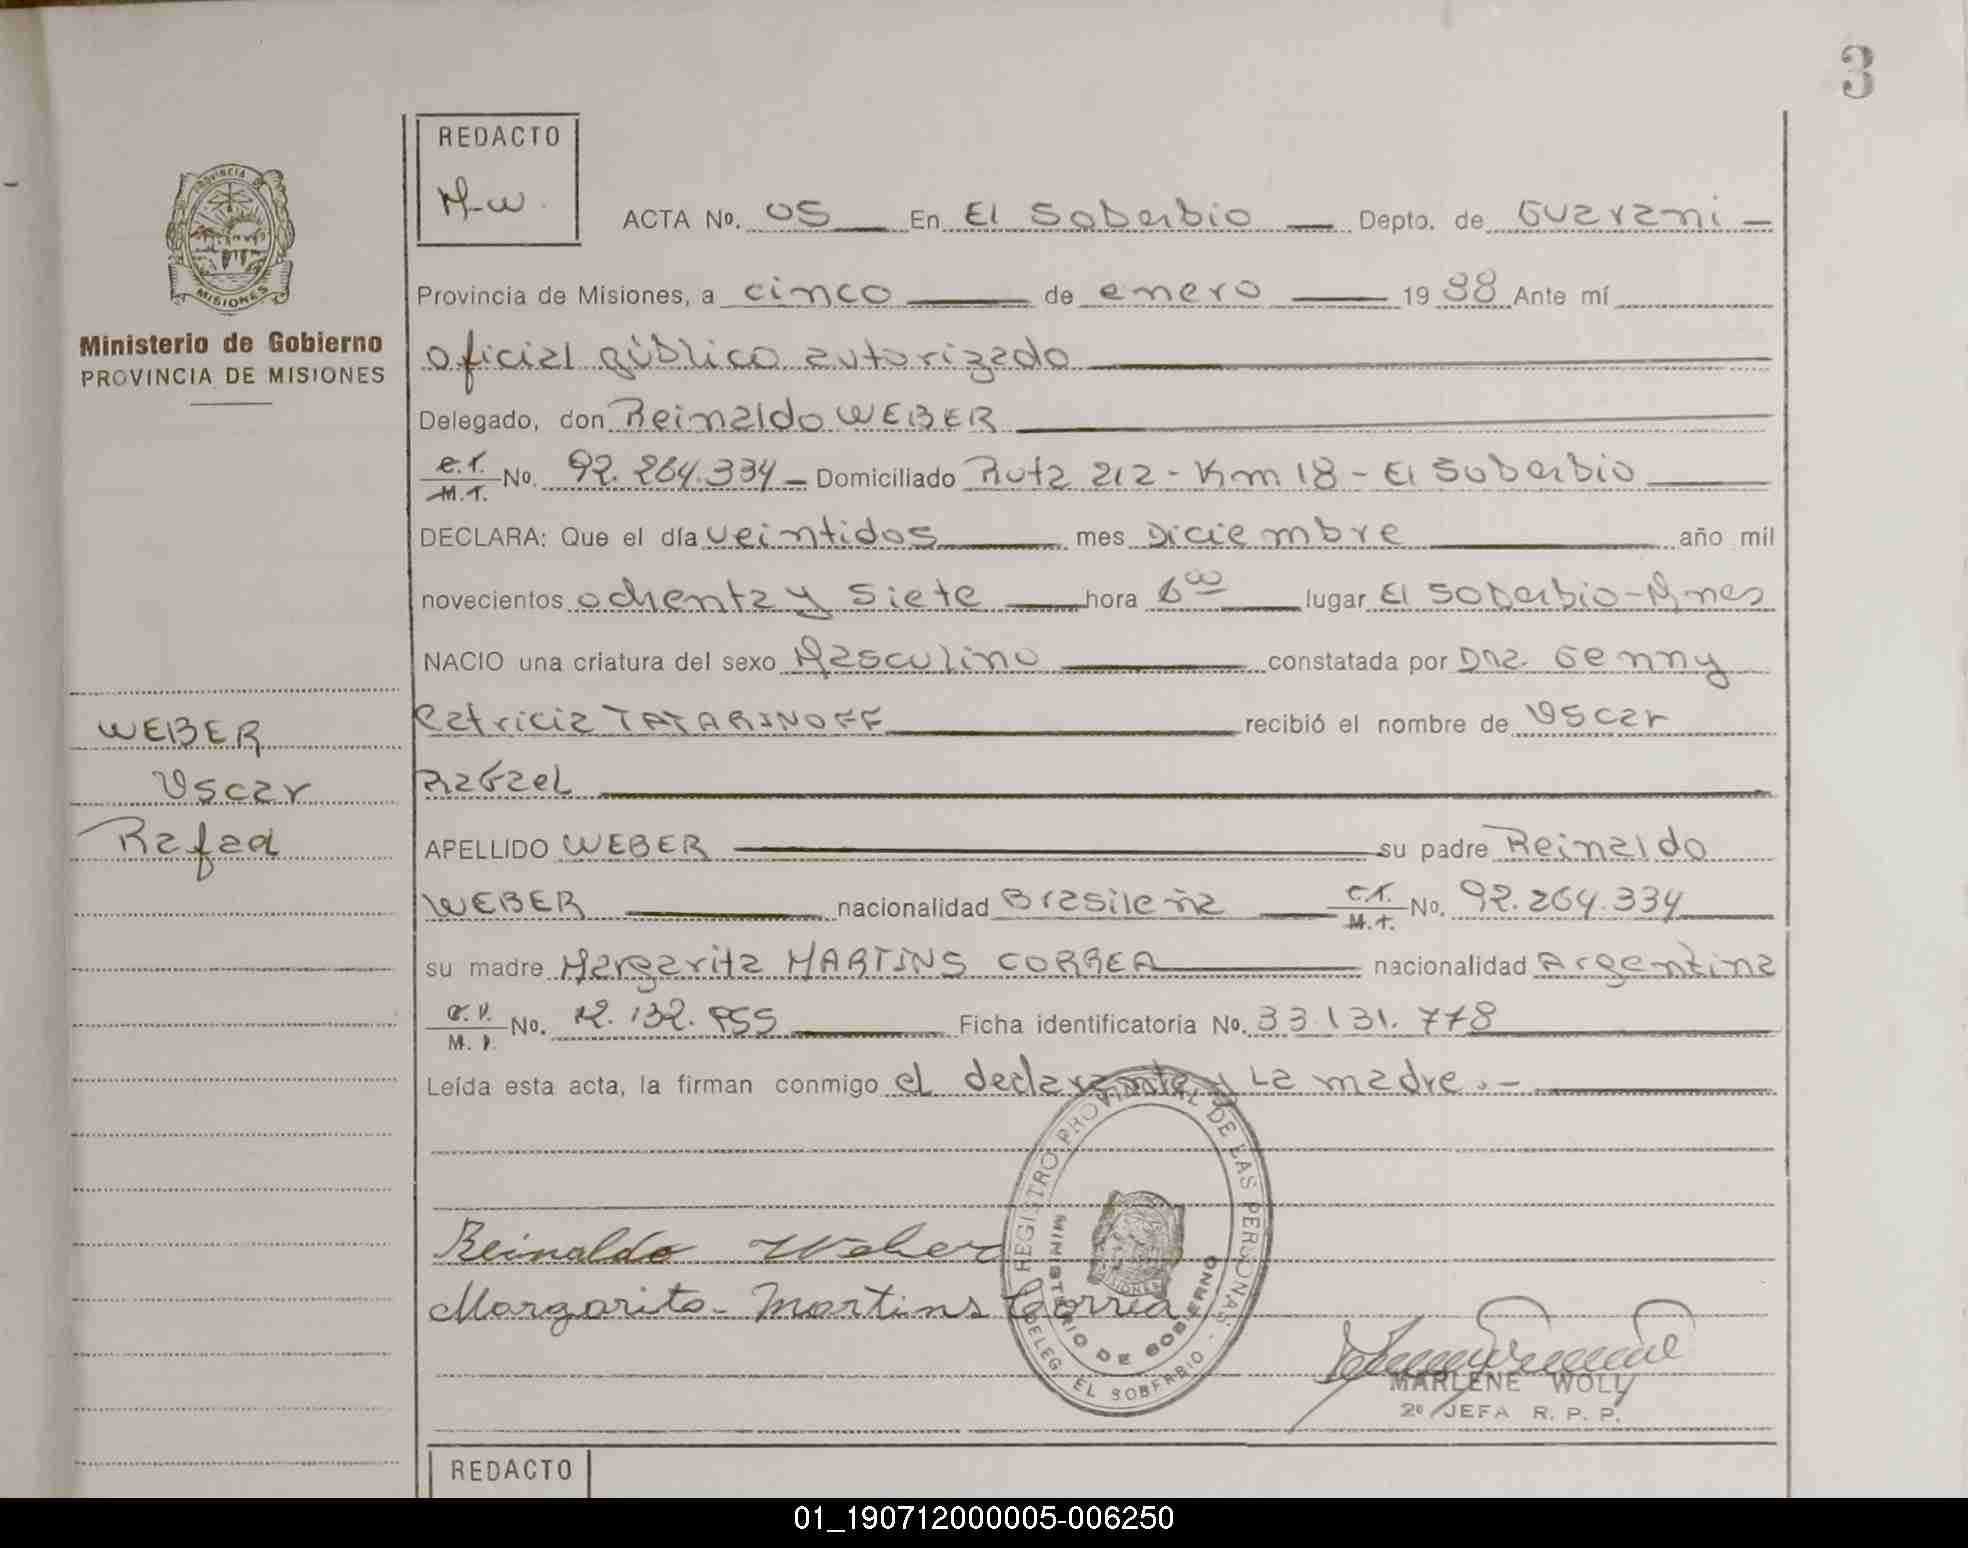 3
REDACTO
M-W.
PROVINCIA DE
MISIONES
Ministerio de Gobierno
PROVINCIA DE MISIONES
ACTA No. 05 En El Soberbio Depto. de Guarani
Provincia de Misiones, a cinco de enero 1988 Ante mí
oficial público autorizado
Delegado, don Reinaldo WEBER
C.I. M.I. No. 92.264.334 Domiciliado Ruta 212 - Km 18 - El Soberbio
DECLARA: Que el día veintidos mes Diciembre año mil
novecientos ochenta y siete hora 6 00 lugar El Soberbio - Mnes
NACIO una criatura del sexo Masculino constatada por Dra. Genny
Patricia TATARINOFF recibió el nombre de Oscar
Rafael
WEBER
Oscar
Rafael
APELLIDO WEBER su padre Reinaldo
WEBER nacionalidad Brasileña C.I. M.I. No. 92.264.334
su madre Margarita MARTINS CORREA nacionalidad Argentina
M.I. No. Ficha identificatoria No. 33.131.778
Leída esta acta, la firman conmigo el declarante y La madre.-
Reinaldo Weber
Margarita Martins Correa
REGISTRO PROVINCIAL DE LAS PERSONAS - DELEG. EL SOBERBIO
MINISTERIO DE GOBIERNO
MARLENE WOLLY
2º JEFA R. P. P.
REDACTO
01_190712000005-006250